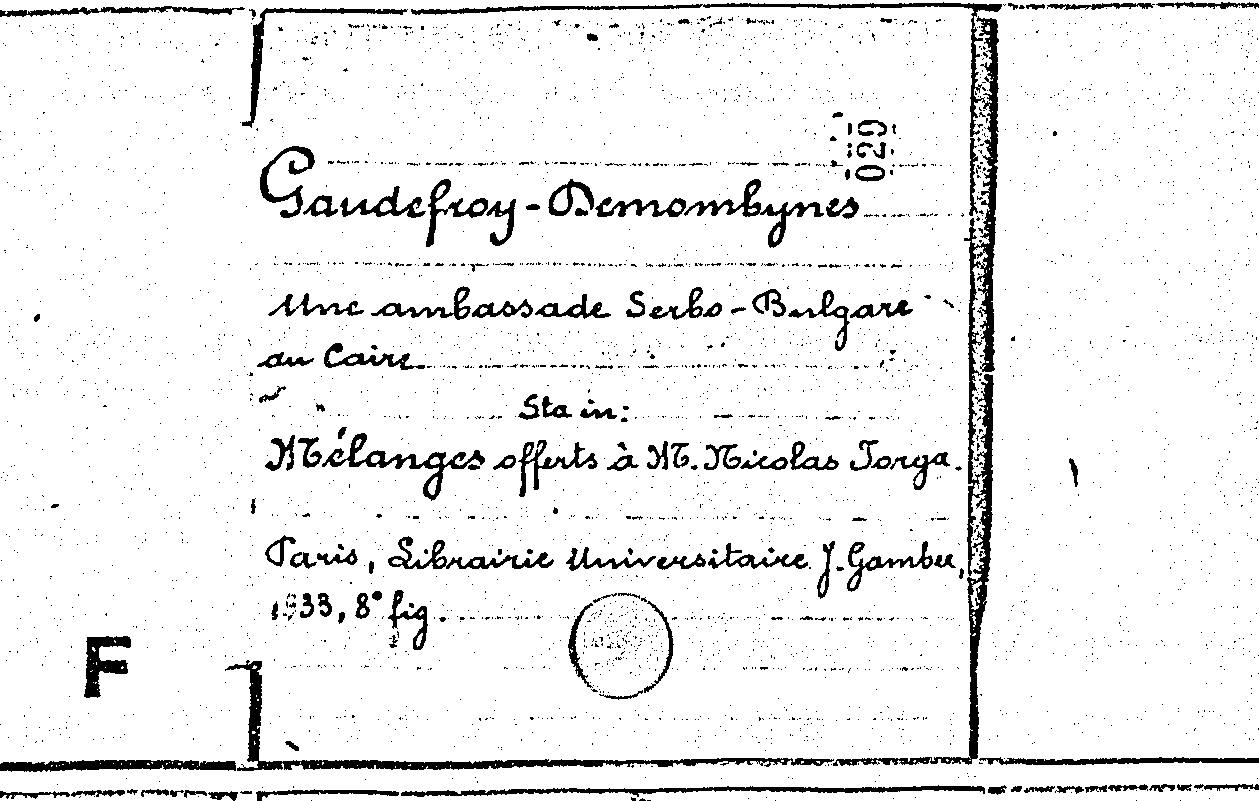 029
Gaudefroy-Demombynes
Une ambassade Serbo-Bulgare
au Caire
Sta in:
Mélanges offerts à M. Nicolas Iorga.
Paris, Librairie Universitaire J. Gamber,
1933, 8° fig.
F